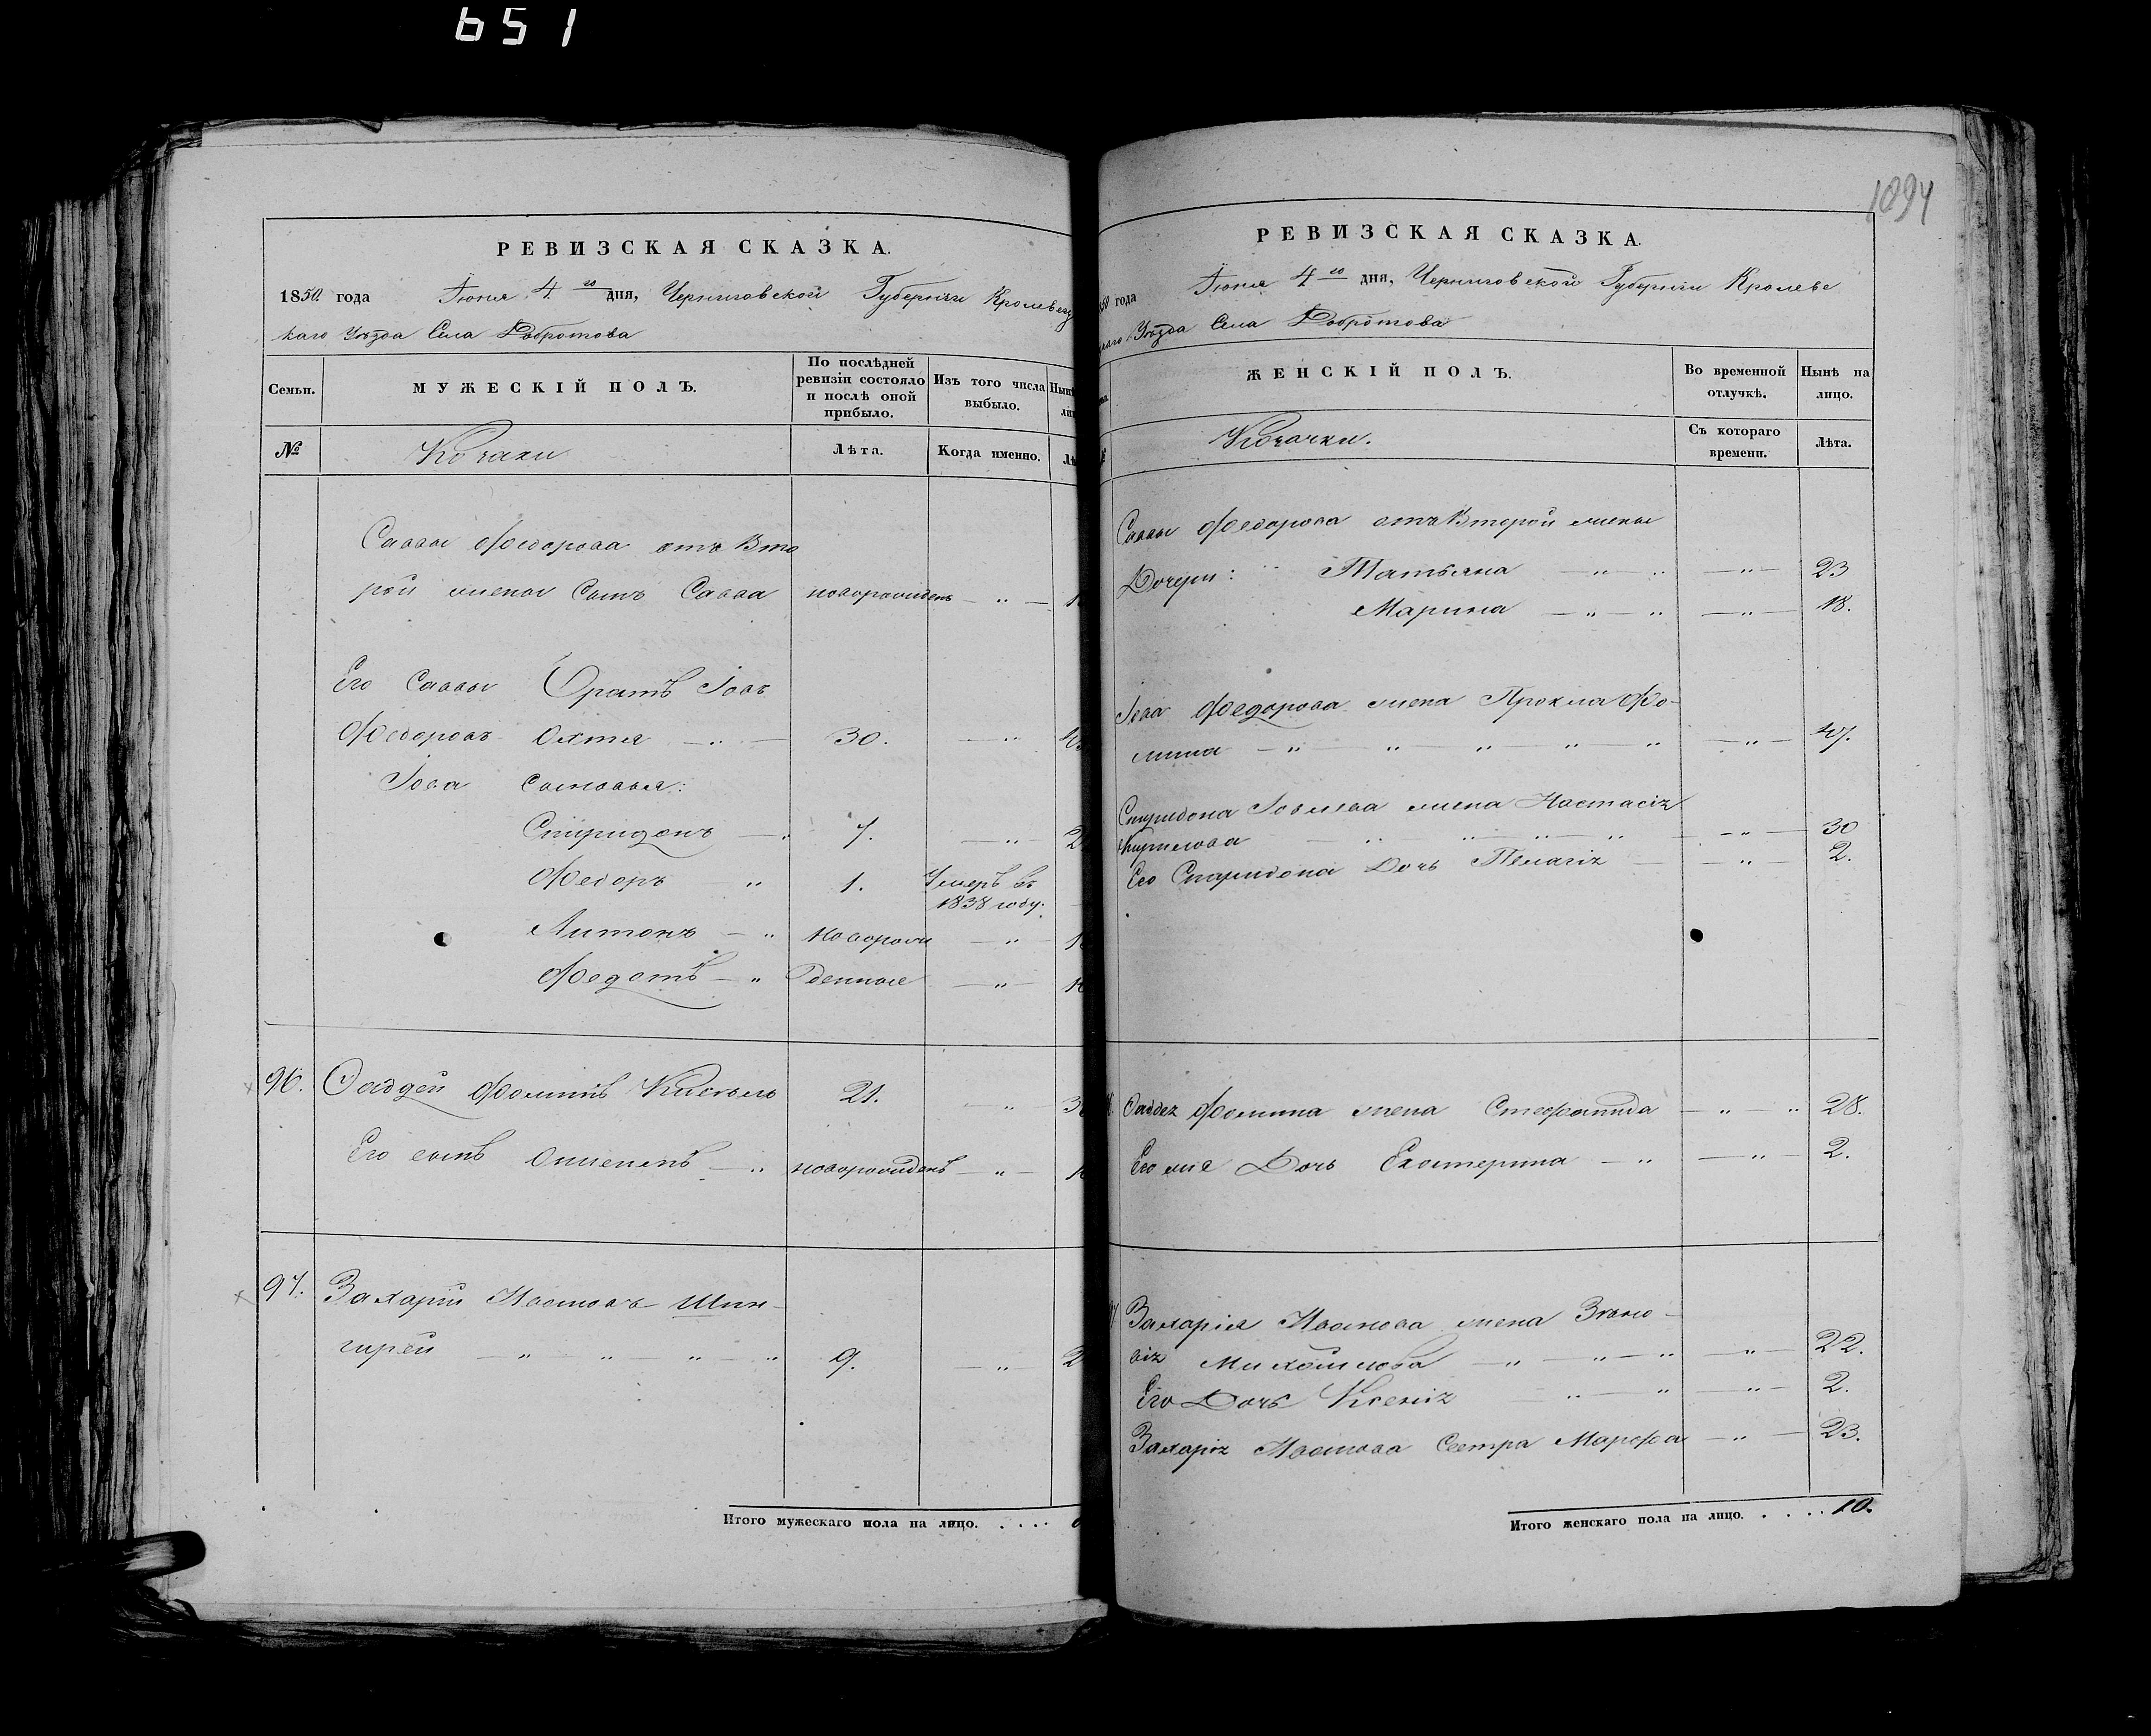 651
РЕВИЗСКАЯ СКАЗКА.
1850 года Іюня 4 го дня, Черниговской Губерніи Кролевец
каго Уѣзда Села Добротова
Семьи.
МУЖЕСКІЙ ПОЛЪ.
По послѣдней ревизіи состояло и послѣ оной прибыло.
Изъ того числа выбыло.
Нынѣ
№
Козаки
Лѣта.
Когда именно.
Саввы Федорова отъ Вто
рой жены сынъ Савва новорожденъ
Его Саввы Братъ Іовъ
Федоровъ 30.
Іова сыновья:
Спиридонъ 7.
Федоръ 1. Умеръ въ
1838 году.
Антонъ новорож
Федотъ денные
96. Фадей Фоминъ 21.
Его сынъ новорожденъ
97. Захарій
9.
Итого мужескаго пола на лицо. . . . .
1094
РЕВИЗСКАЯ СКАЗКА.
года Іюня 4 го дня, Черниговской Губерніи Кролеве
Уѣзда Села Добротова
ЖЕНСКІЙ ПОЛЪ.
Во временной отлучкѣ.
Нынѣ на лицо.
Козачки.
Съ котораго времени.
Лѣта.
Саввы Федорова отъ Второй жены
Дочери: Татьяна 23
Марина 18.
Іова Федорова жена Фо-
мина 47.
Спиридона Іовлева жена Настасія
Кирилова 30
Его Спиридона Дочь Пелагія 2.
Фаддея Фомина жена Стефанида 28.
Его же Дочь Екатерина 2.
Захарія жена
Михайлова 22.
Его Дочь Ксенія 2.
Захарія Сестра Марфа 23.
Итого женскаго пола на лицо. . . . . 10.